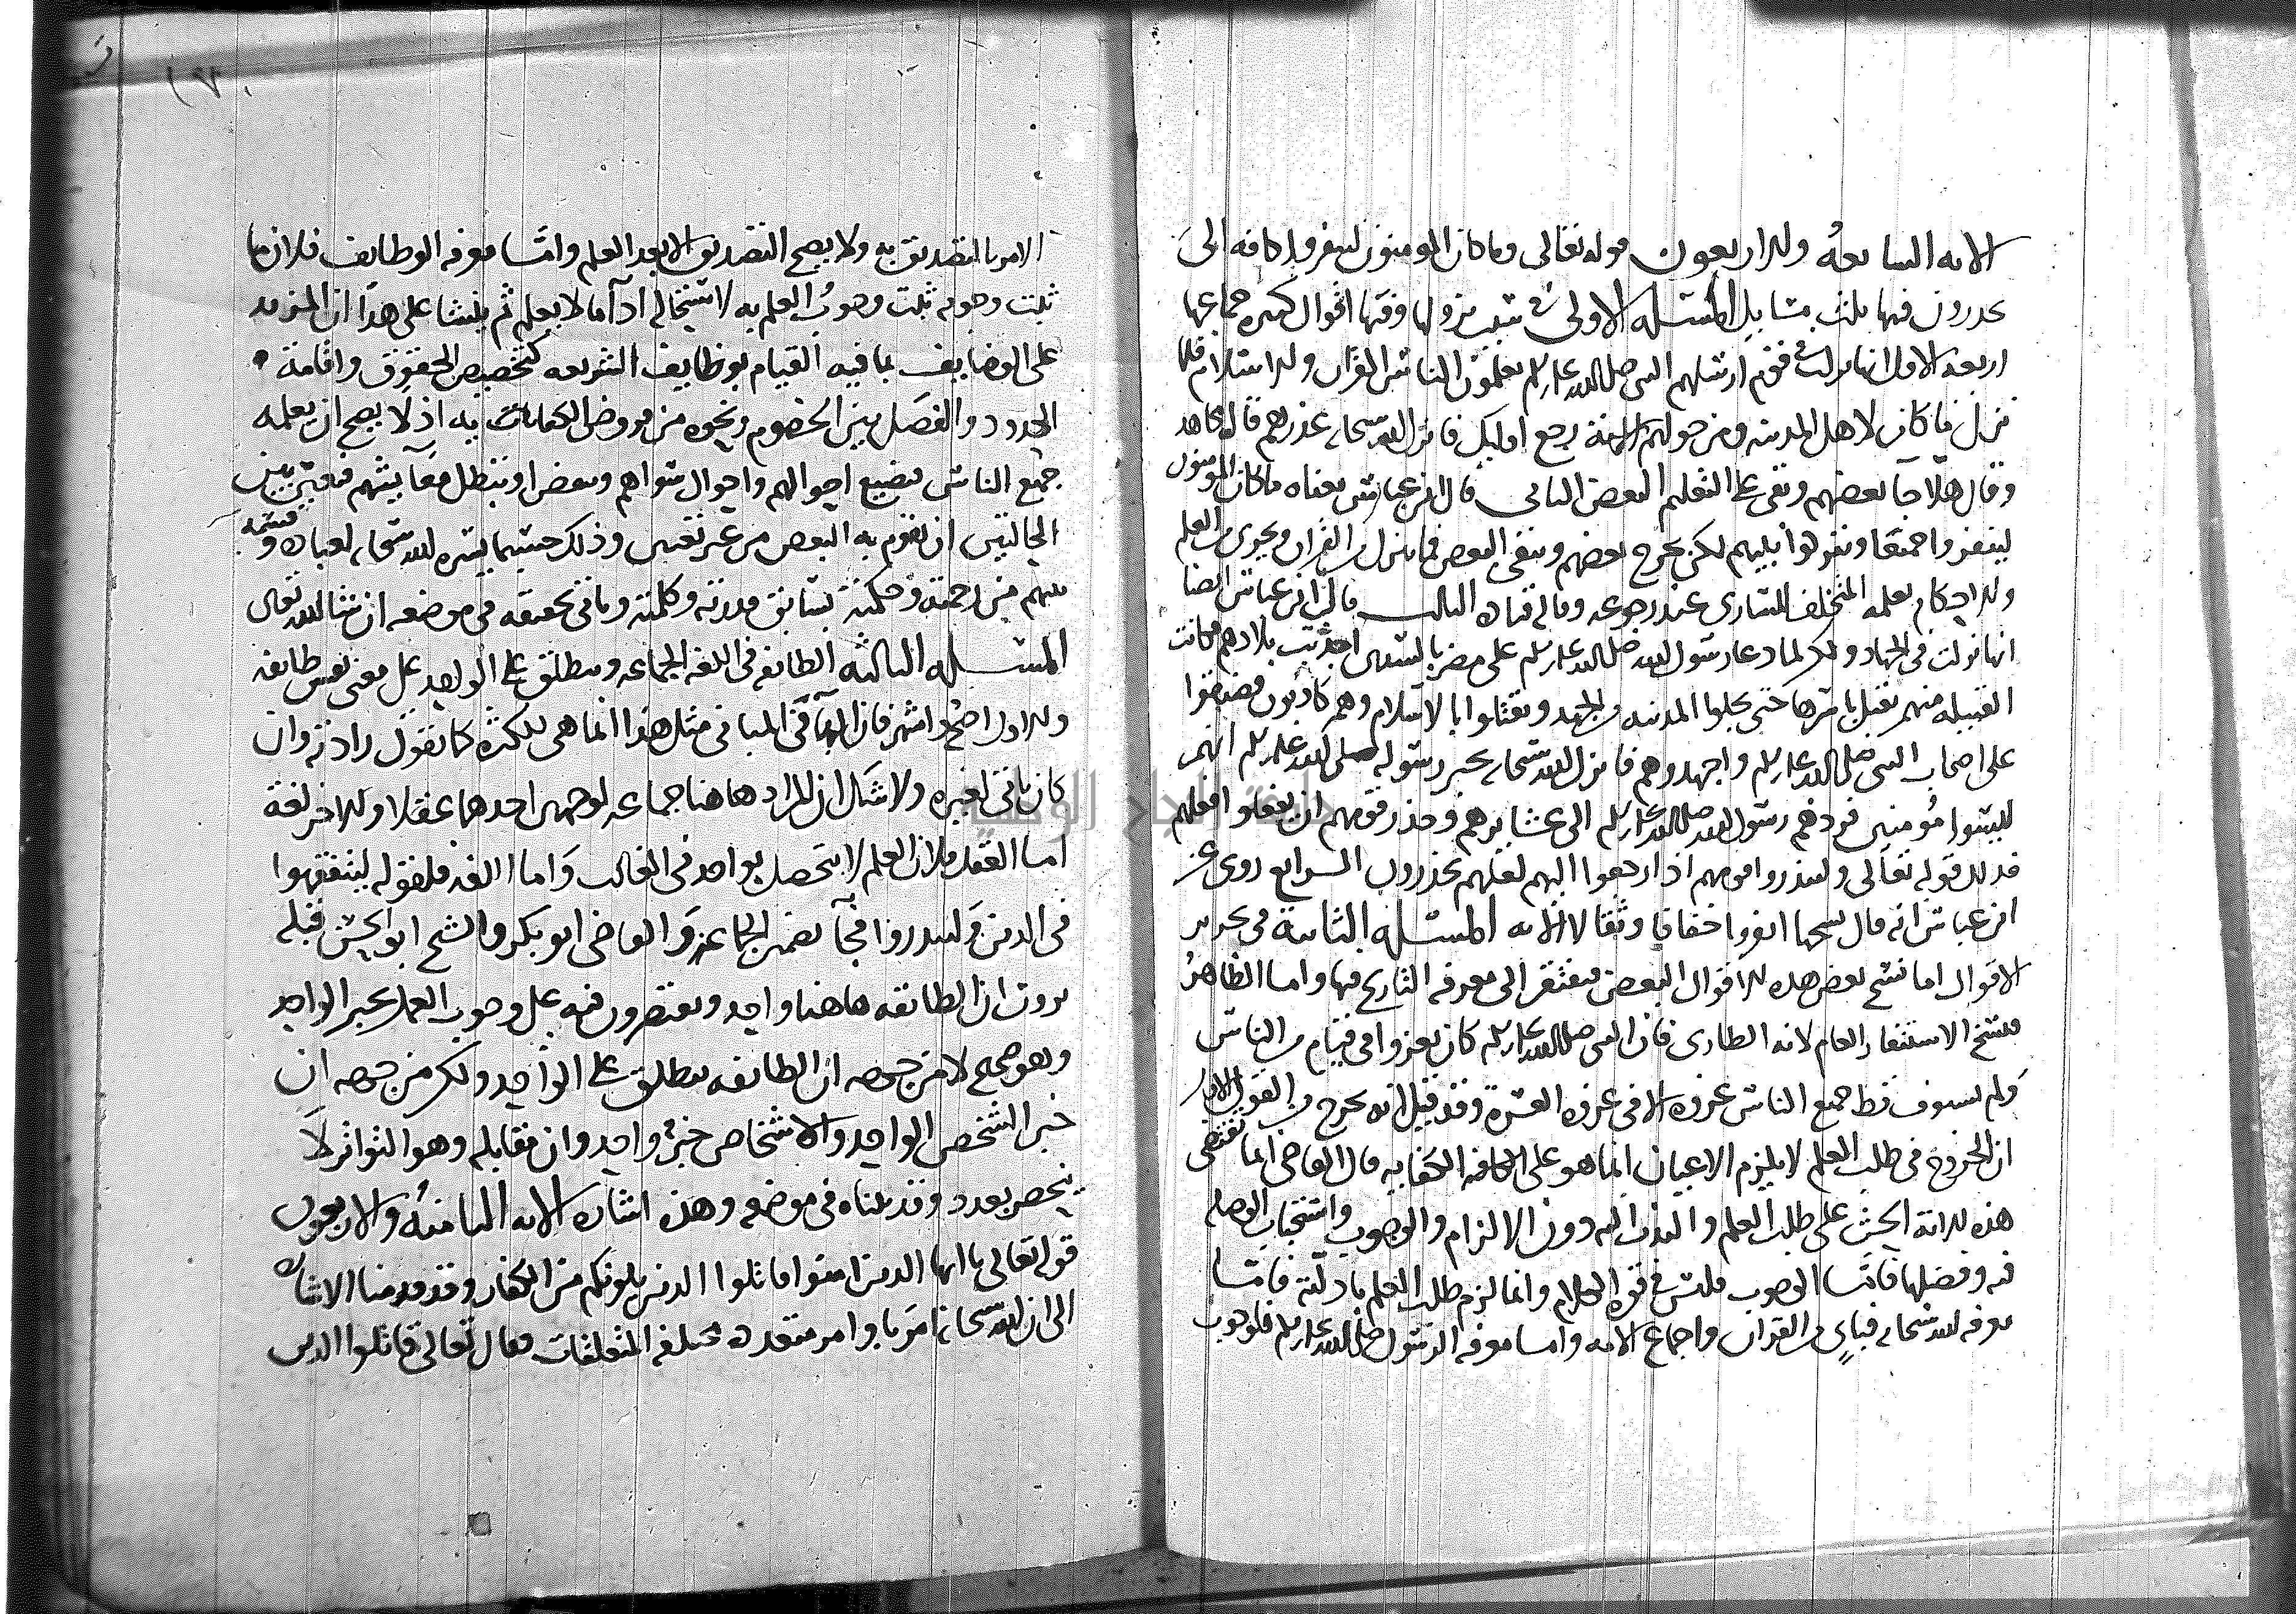 الايه السابعه والاربعون قوله تعالى وما كان المومنون لينفروا كافه الى
يحذرون فيها ثلث مسايل المسئله الاولى في سبب نزولها وفيها اقوال كثيره جماعها
اربعه الاول انها نزلت في قوم ارسلهم النبي صلى الله عليه وسلم يعلمون الناس القران والاسلام فلما
نزل ما كان لاهل المدينه ومن حولهم الايه رجع اوليك فانزل الله سبحانه عذرهم قاله مجاهد
وقال هلا جا بعضهم وبقي على التعليم البعض الثاني قال ابن عباس معناه ما كان المومنون
لينفروا جميعا ويتركوا نبيهم لكن يخرج بعضهم ويبقى البعض فيما ينزل من القران ويجري من العلم
والاحكام يعلمه المتخلف للساري عند رجوعه وقاله قتاده الثالث قال ابن عباس ايضا
انها نزلت في الجهاد ولكن لما دعا رسول الله صلى الله عليه وسلم على مضر بالسنين اجدبت بلادهم فكانت
القبيله منهم تقبل باسرها حتى يحلوا المدينه من الجهد ويعتلوا بالاسلام وهم كاذبون فضيقوا
على اصحاب النبي صلى الله عليه وسلم واجهدوهم فانزل الله سبحانه يخبر رسوله صلى الله عليه وسلم انهم
ليسوا مومنين فردهم رسول الله صلى الله عليه وسلم الى عشايرهم وحذر قومهم ان يفعلوا فعلهم
فذلك قوله تعالى ولينذروا قومهم اذا رجعوا اليهم لعلهم يحذرون الرابع روي عن
ابن عباس انه قال نسختها انفروا خفافا وثقالا الايه المسئله الثانية في تحرير
الاقوال اما نسخ بعض هذه الاقوال البعض فيفتقر الى معرفه التاريخ فيها واما الظاهر
فنسخ الاستنفار العام لانه الطاري فان النبي صلى الله عليه وسلم كان يغزوا في فئام من الناس
ولم يستوف قط جميع الناس غزوه الا في غزوه العسرة وقد قيل انه يخرج من القول الاول
ان الخروج في طلب العلم لا يلزم الاعيان انما هو على الكافه الكفايه قال القاضي انما تقتضي
هذه الاية الحث على طلب العلم والندب اليه دون الالزام والوجوب واستحباب الرحله
فيه وفضلها فاما الوجوب فليس في قوه الكلام وانما لزم طلب العلم بادلته فاما
معرفه الله سبحانه فباي من القران واجماع الامه واما معرفه الرسول صلى الله عليه وسلم فلوجوب
الامر بالتصديق به ولا يصح التصديق الا بعد العلم واما معرفه الوظايف فلان ما
ثبت وجوبه ثبت وجوب العلم به لاستحاله ادآ ما لا يعلم ثم ينشا على هذا ان المزيد
على الوضايف بما فيه القيام بوظايف الشريعه كتحصيص الحقوق واقامة
الحدود والفصل بين الخصوم ونحوه من فروض الكفايات فيه اذ لا يصح ان يعلمه
جميع الناس فتضيع احوالهم واحوال سواهم وينقص او تبطل معآيشهم فتعين بين
الحالتين ان يقوم به البعض من غير تعيين وذلك حسبما يسره الله سبحانه لعباده وقسمه
بينهم من رحمته وحكمته بسابق قدرته وكلمته وياتي تحقيقه في موضعه ان شا الله تعالى
المسئله الثالثه الطايفه في اللغه الجماعه وينطلق على الواحد على معنى نفس طايفه
والاول اصح واشهر فان الهآ في المباني مثل هذا انما هي للكثره كما تقول راويه وان
كان ياتي لغيره ولا شك ان المراد هاهنا جماعه لوجهين احدهما عقلا والاخر لغة
اما العقل فلان العلم لا يتحصل بواحد في الغالب واما اللغه فلقوله ليتفقهوا
في الدين ولينذروا فجآ بضمير الجماعه والقاضي ابو بكر والشيخ ابو الحسن قبله
يرون ان الطايفه هاهنا واحد ويعتضدون فيه على وجوب العمل بخبر الواحد
وهو صحيح لا من جهه ان الطايفه ينطلق على الواحد ولكن من جهه ان
خبر الشخص الواحد والاشخاص خبر واحد وان مقابله وهو التواتر لا
ينحصر بعدد وقد بيناه في موضعه وهذه اشاره الايه الثامنه والاربعون
قوله تعالى يا ايها الذين امنوا قاتلوا الذين يلونكم من الكفار وقد قدمنا الاشاره
الى ان الله سبحانه امر باوامر متعدده مختلفه المتعلقات فقال تعالى قاتلوا الذين